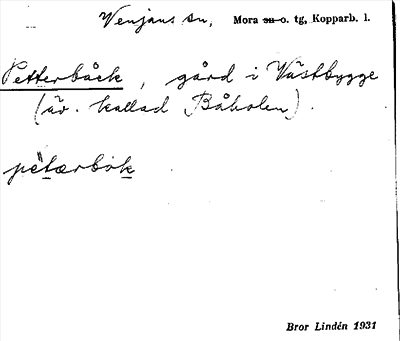 Venjans sn, Mora sn o. tg, Kopparb. l.
Petterbäck, gård i Västbygge
(äv. kallad Båholen).
petærbök
Bror Lindén 1931